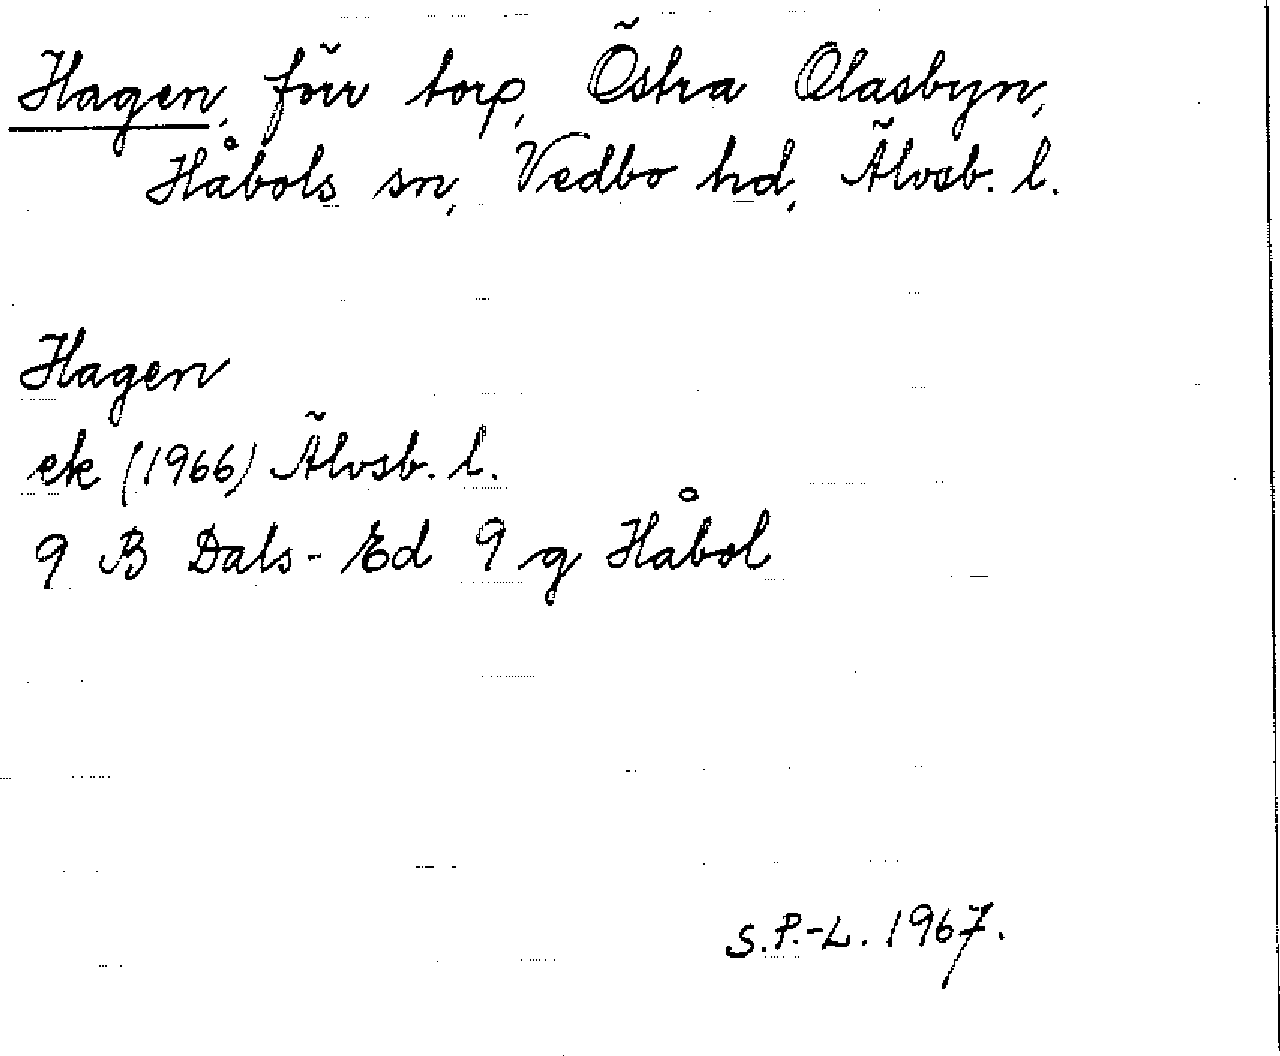 Hagen, förr torp, Östra Olasbyn,
Håbols sn, Vedbo hd, Älvsb. l.
Hagen
ek (1966) Älvsb. l.
9 B Dals-Ed 9 g Håbol
S.P.-L. 1967.